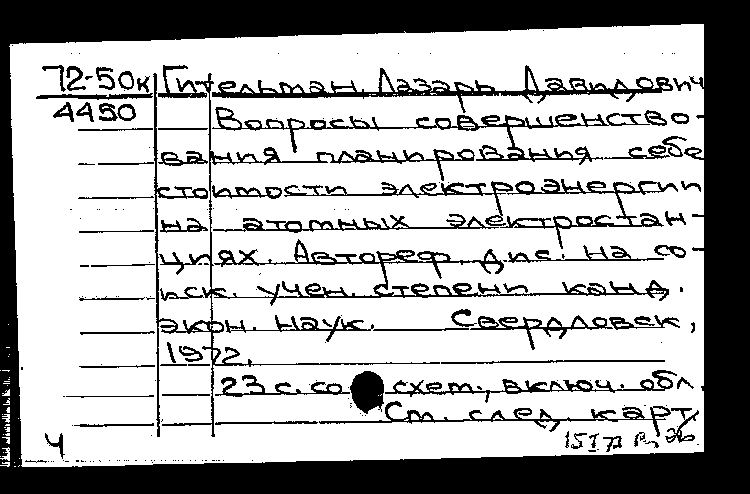 72-50к Гительман, Лазарь Давидович
4450 Вопросы совершенство-
вания планирования себе
стоимости электроэнергии
на атомных электростан-
циях. Автореф. дис. на со-
иск. учен. степени канд.
экон. наук. Свердловск,
1972.
23 с. со схем., включ. обл.
См. след. карт.
4